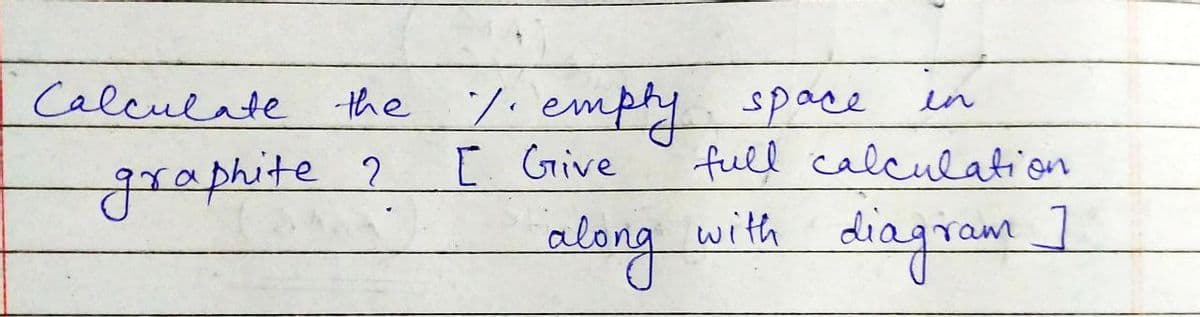 Calculate the % empty space in
graphite ? [ Give full calculation
along with diagram ]